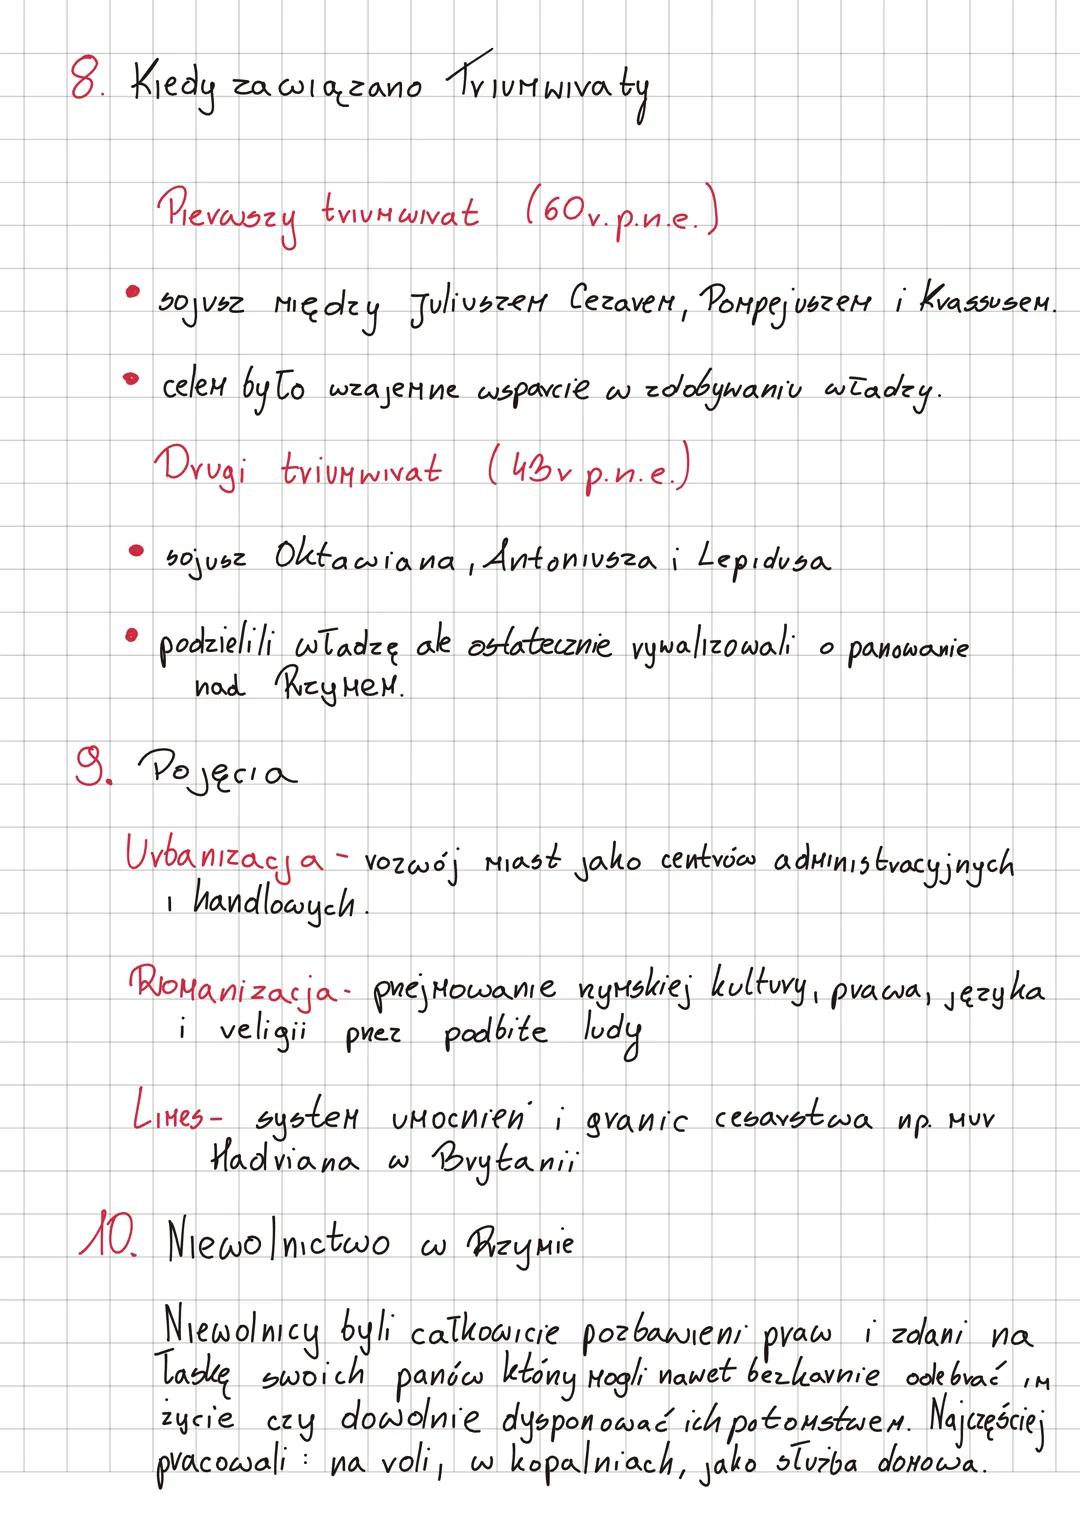 8. Kiedy zawiązano Triumwiraty
Pierwszy triumwirat (60r. p.n.e.)
• sojusz między Juliuszem Cezarem, Pompejuszem i Krassusem.
• celem było wzajemne wsparcie w zdobywaniu władzy.
Drugi triumwirat (43r p.n.e.)
• sojusz Oktawiana, Antoniusza i Lepidusa
• podzielili władzę ale ostatecznie rywalizowali o panowanie
nad Rzymem.
9. Pojęcia
Urbanizacja - rozwój miast jako centrów administracyjnych
i handlowych.
Romanizacja - przejmowanie rzymskiej kultury, prawa, języka
i religii przez podbite ludy
Limes - system umocnień i granic cesarstwa np. mur
Hadriana w Brytanii
10. Niewolnictwo w Rzymie
Niewolnicy byli całkowicie pozbawieni praw i zdani na
łaskę swoich panów którzy mogli nawet bezkarnie odebrać im
życie czy dowolnie dysponować ich potomstwem. Najczęściej
pracowali : na roli, w kopalniach, jako służba domowa.